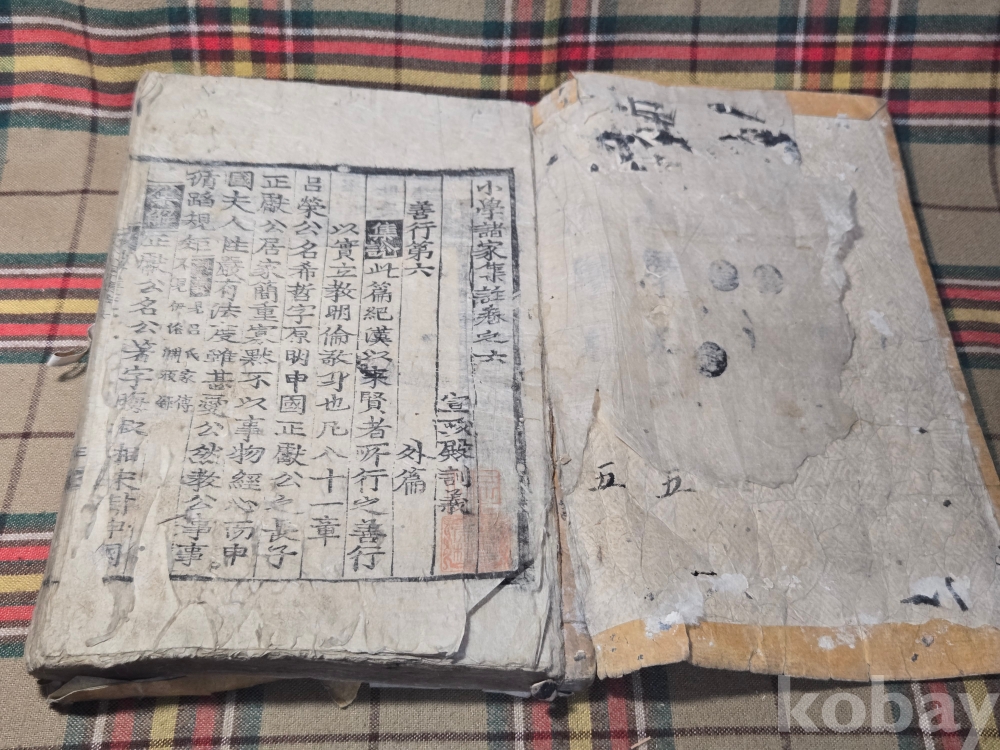 五 五
小學諸家集註卷之六
宣政殿訓義
善行第六
外篇
集解此篇紀漢以來賢者所行之善行
以實立敎明倫敬身也凡八十一章
呂滎公名希哲字原明申國正獻公之長子
正獻公居家簡重寡默不以事物經心而申
國夫人性嚴有法度雖甚愛公然敎公事事
循蹈規矩
見呂氏家傳
集解正獻公名公著字晦叔相宋封申國
kobay